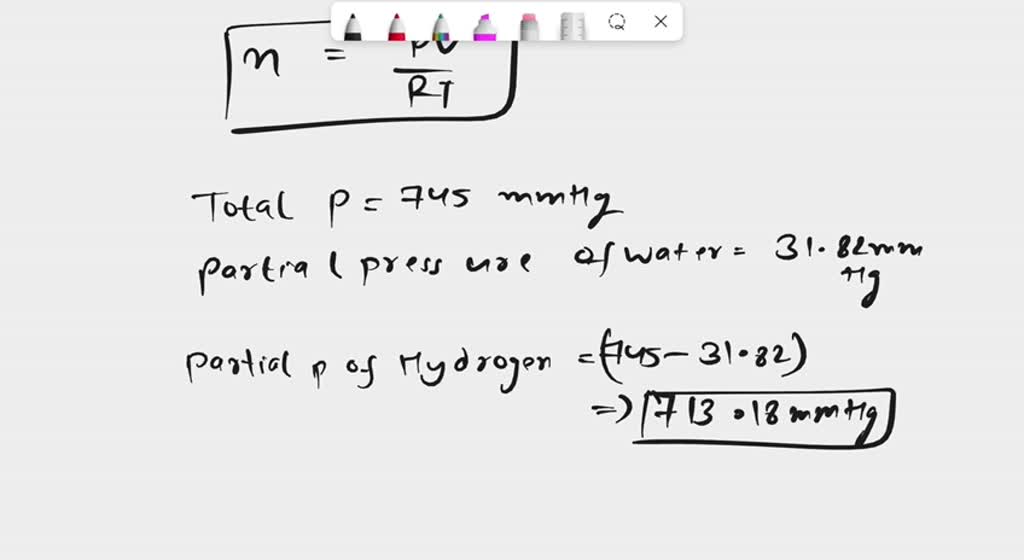 n = PV
RT
Total P = 745 mmHg
partial pressure of water = 31.82mm
Hg
partial p of Hydrogen = (745 - 31.82)
=> 713.18 mmHg